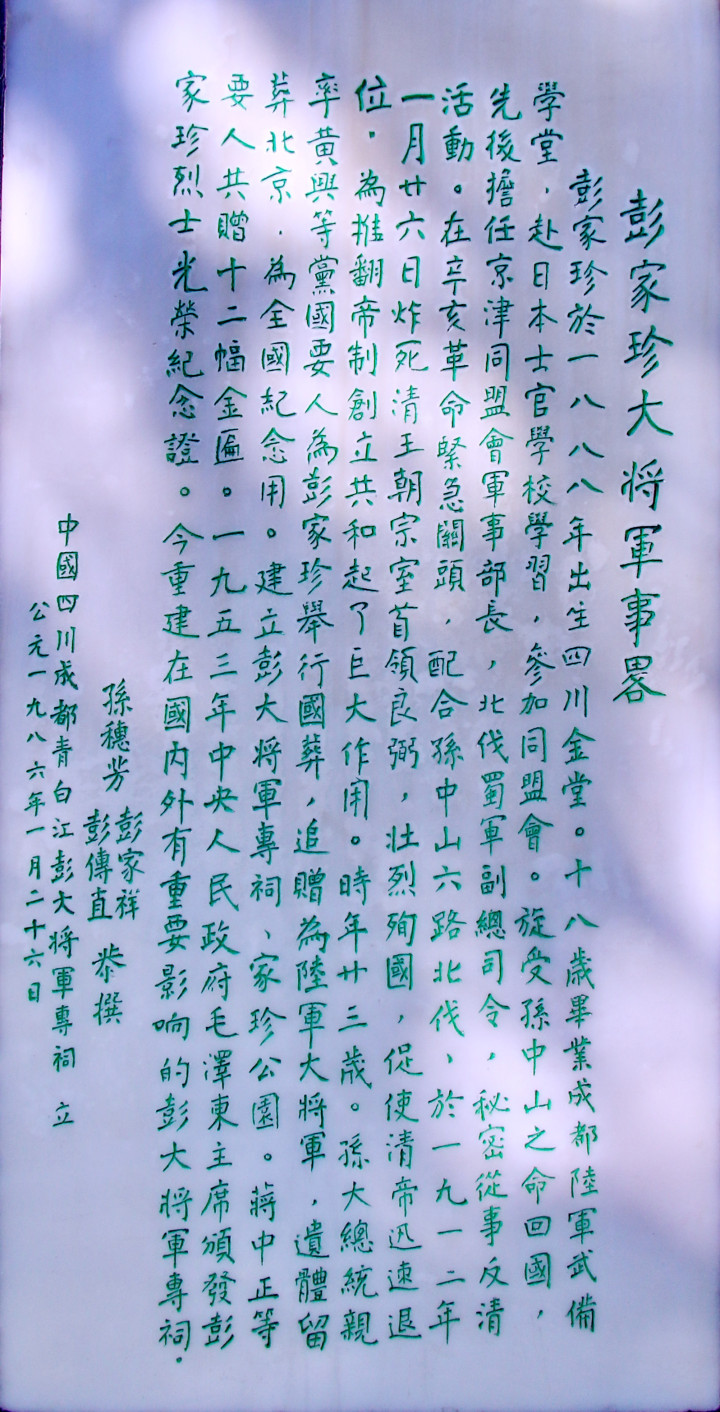 彭家珍大将軍事畧
彭家珍於一八八八年出生四川金堂。十八歲畢業成都陸軍武備
學堂，赴日本士官學校學習，參加同盟會。旋受孫中山之命回國，
先後擔任京津同盟會軍事部長，北伐蜀軍副總司令，秘密從事反清
活動。在辛亥革命緊急關頭，配合孫中山六路北伐，於一九一二年
一月廿六日炸死清王朝宗室首領良弼，壯烈殉國，促使清帝迅速退
位，為推翻帝制創立共和起了巨大作用。時年廿三歲。孫大總統親
率黃興等黨國要人為彭家珍舉行國葬，追贈為陸軍大将軍，遺體留
葬北京，為全國紀念用。建立彭大将軍專祠、家珍公園。蔣中正等
要人共贈十二幅金匾。一九五三年中央人民政府毛澤東主席頒發彭
家珍烈士光榮紀念證。今重建在國內外有重要影响的彭大将軍專祠．
孫穗芳 彭家祥 彭傳直 恭撰
中國四川成都青白江彭大将軍專祠 立
公元一九八六年一月二十六日